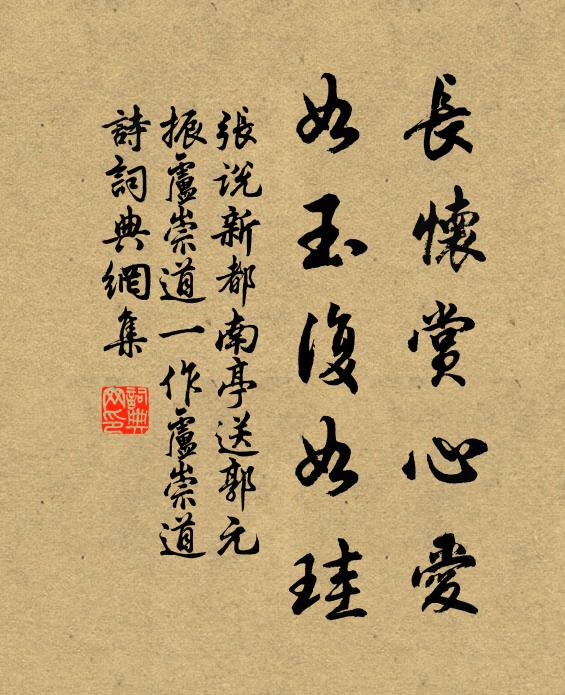 長懷賞心愛
如玉復如珪
張説新都南亭送郭元
振盧崇道一作盧崇道
詩詞典網集
詞典
网印